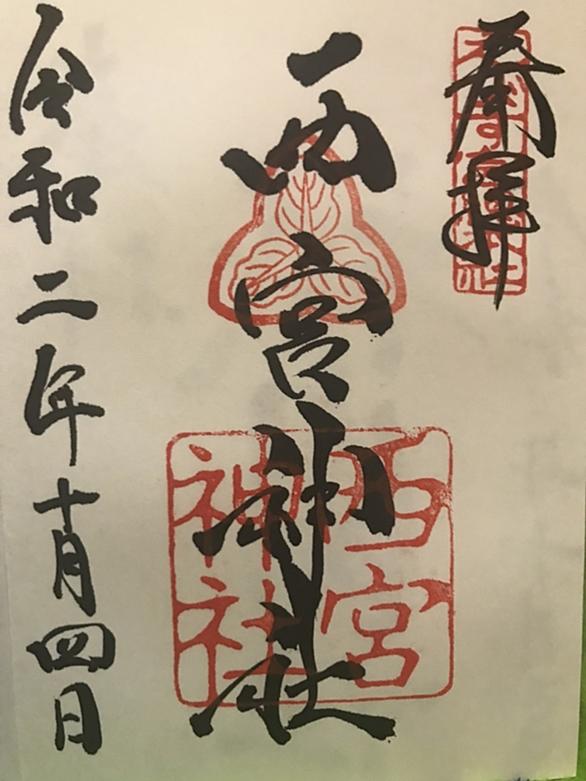 奉拝
西宮神社
西宮
神社
令和二年十月四日